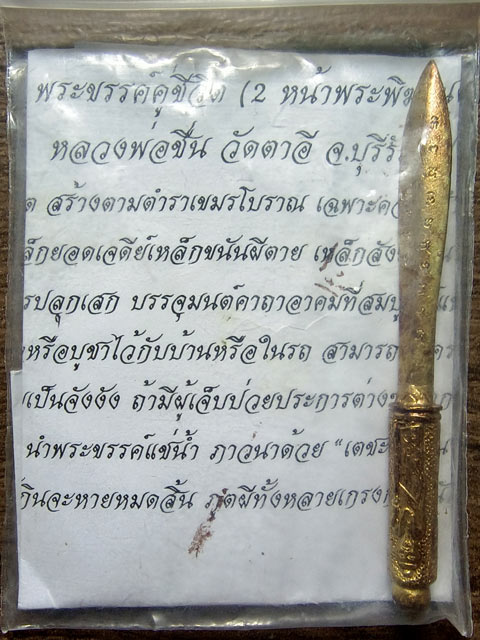 พระขรรค์คู่ชีวิต (2 หน้าพระพิฆ
หลวงพ่อชื่น วัดตาอี จ.บุรีรั
ด สร้างตามตำราเขมรโบราณ เฉพาะ
ล็กยอดเจดีย์เหล็กขนันผีตาย เหล็กสัง
รปลุกเสก บรรจุมนต์คาถาอาคมที่สมบู
หรือบูชาไว้กับบ้านหรือในรถ สามารถ
เป็นจังงัง ถ้ามีผู้เจ็บป่วยประการต่าง
นำพระขรรค์แช่น้ำ ภาวนาด้วย "เตชะ
กินจะหายหมดสิ้น ภูตผีทั้งหลายเกรง